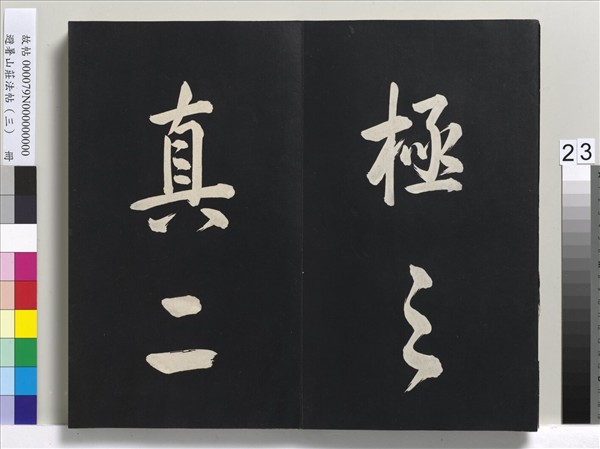 極之
真二
故帖 000079N000000000
避暑山莊法帖(三) 冊
23